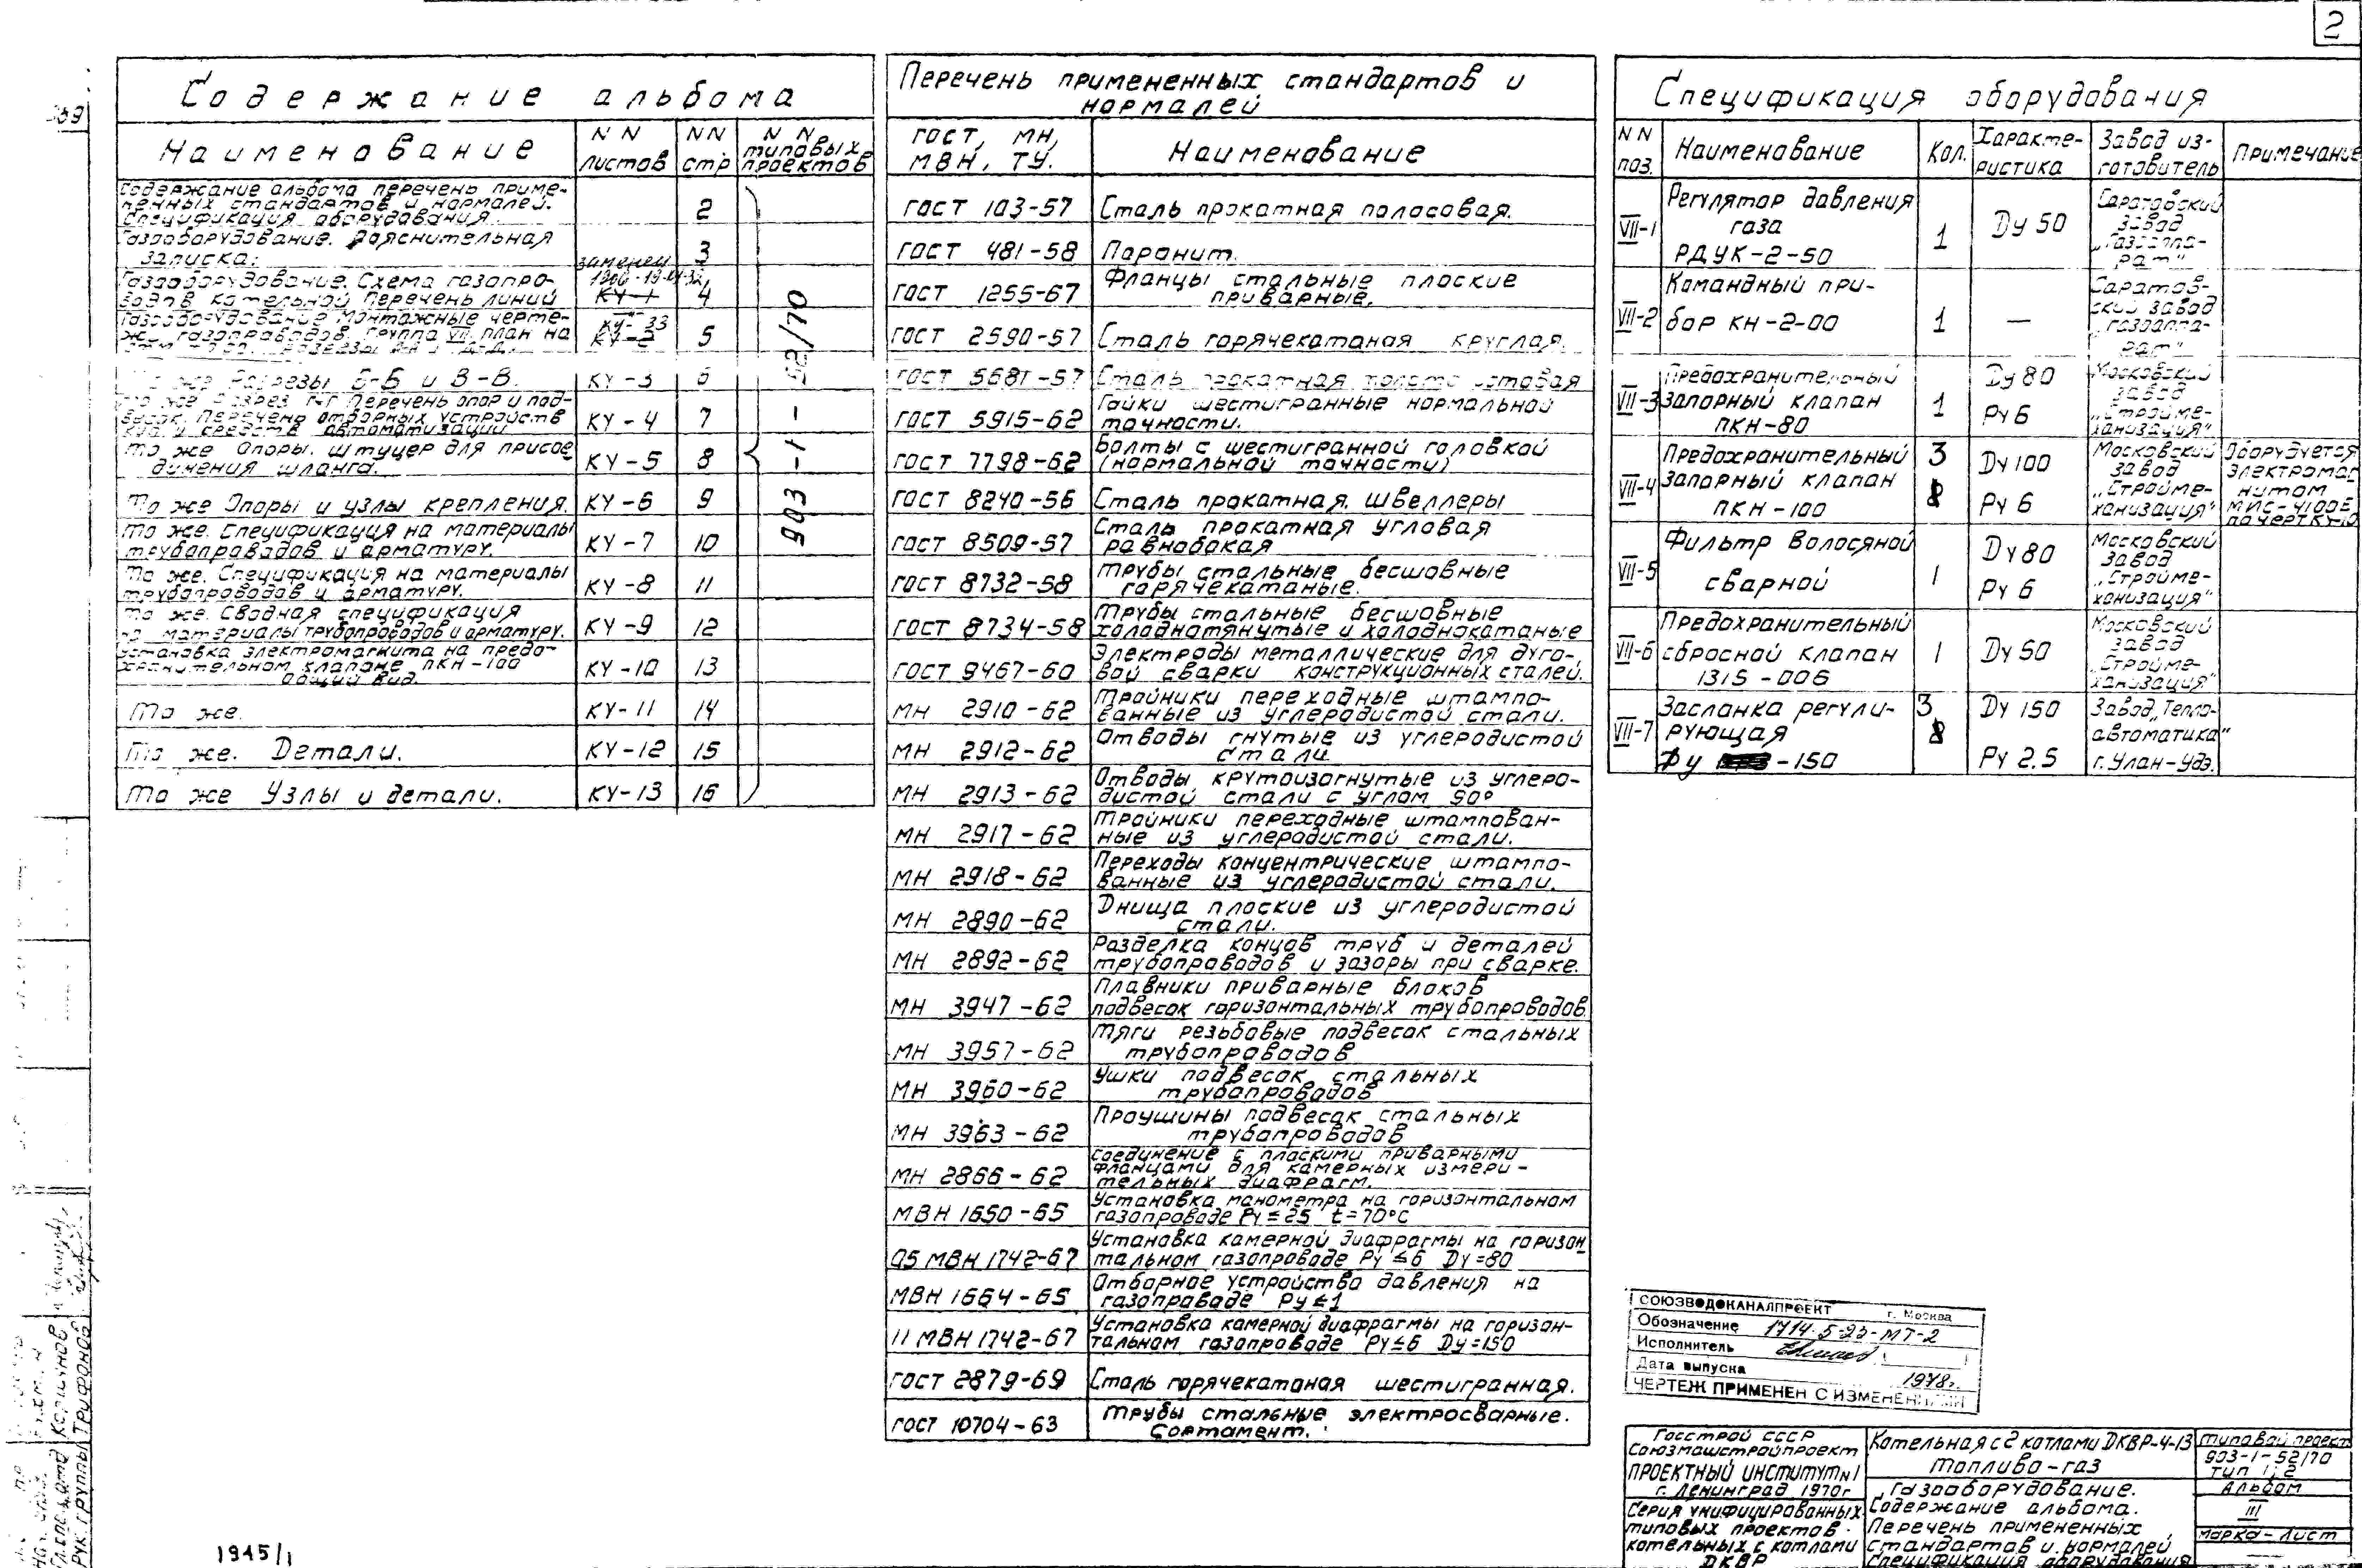 2
Содержание альбома
Наименование
NN листов
NN стр
NN типовых проектов
Содержание альбома перечень приме-
ненных стандартов и нормалей.
Спецификация оборудования.
2
Газооборудование. Пояснительная
записка.
3
Газооборудование. Схема газопро-
водов котельной Перечень линий
заменен
КУ-1
4
Газооборудование Монтажные черте-
жи газопроводов. Группа VII. План на
КУ-33
КУ-2
5
То же Разрезы Б-Б и В-В.
КУ-3
6
То же Разрез Г-Г Перечень опор и под-
весок, перечень отборных устройств
и средств автоматизации
КУ-4
7
То же Опоры. Штуцер для присое
динения шланга.
КУ-5
8
То же Опоры и узлы крепления.
КУ-6
9
То же. Спецификация на материалы
трубопроводов и арматуру.
КУ-7
10
То же. Спецификация на материалы
трубопроводов и арматуру.
КУ-8
11
То же. Сводная спецификация
на материалы трубопроводов и арматуру.
КУ-9
12
Установка электромагнита на предо-
хранительном клапане ПКН-100
Общий вид.
КУ-10
13
То же.
КУ-11
14
То же. Детали.
КУ-12
15
То же Узлы и детали.
КУ-13
16
903-1-52/70
Перечень примененных стандартов и
нормалей
ГОСТ, МН,
МВН, ТУ.
Наименование
ГОСТ 103-57 Сталь прокатная полосовая.
ГОСТ 481-58 Паронит.
ГОСТ 1255-67 Фланцы стальные плоские
приварные.
ГОСТ 2590-57 Сталь горячекатаная круглая.
ГОСТ 5681-57 Сталь прокатная толстолистовая
ГОСТ 5915-62 Гайки шестигранные нормальной
точности.
ГОСТ 7798-62 Болты с шестигранной головкой
(нормальной точности)
ГОСТ 8240-56 Сталь прокатная. Швеллеры
ГОСТ 8509-57 Сталь прокатная угловая
равнобокая
ГОСТ 8732-58 Трубы стальные бесшовные
горячекатаные.
ГОСТ 8734-58 Трубы стальные бесшовные
холоднотянутые и холоднокатаные
ГОСТ 9467-60 Электроды металлические для дуго-
вой сварки конструкционных сталей.
МН 2910-62 Тройники переходные штампо-
ванные из углеродистой стали.
МН 2912-62 Отводы гнутые из углеродистой
стали
МН 2913-62 Отводы крутоизогнутые из углеро-
дистой стали с углом 90°
МН 2917-62 Тройники переходные штампован-
ные из углеродистой стали.
МН 2918-62 Переходы концентрические штампо-
ванные из углеродистой стали.
МН 2890-62 Днища плоские из углеродистой
стали.
МН 2892-62 Разделка концов труб и деталей
трубопроводов и зазоры при сварке.
МН 3947-62 Плавники приварные блоков
подвесок горизонтальных трубопроводов
МН 3957-62 Тяги резьбовые подвесок стальных
трубопроводов
МН 3960-62 Ушки подвесок стальных
трубопроводов
МН 3963-62 Проушины подвесок стальных
трубопроводов
МН 2866-62 Соединение с плоскими приварными
фланцами для камерных измери-
тельных диафрагм.
МВН 1650-65 Установка манометра на горизонтальном
газопроводе Ру ≤ 25 t=70°С
05 МВН 1742-67 Установка камерной диафрагмы на горизон
тальном газопроводе Ру ≤6 Ду=80
МВН 1664-65 Отборное устройство давления на
газопроводе Ру ≤ 1
11 МВН 1742-67 Установка камерной диафрагмы на горизон-
тальном газопроводе Ру ≤ 6 Ду=150
ГОСТ 2879-69 Сталь горячекатаная шестигранная.
ГОСТ 10704-63 Трубы стальные электросварные.
Сортамент.
Спецификация оборудования
NN
поз.
Наименование
Кол.
Характе-
ристика
Завод из-
готовитель
Примечание
VII-1
Регулятор давления
газа
РДУК-2-50
1
Ду 50
Саратовский
завод
„Газоаппа-
рат"
VII-2
Командный при-
бор КН-2-00
1
—
Саратов-
ский завод
„Газоаппа-
рат"
VII-3
Предохранительный
запорный клапан
ПКН-80
1
Ду 80
Ру 6
Московский
завод
„Строиме-
ханизация"
VII-4
Предохранительный
запорный клапан
ПКН-100
3
Ду 100
Ру 6
Московский
завод
„Строиме-
ханизация"
Оборудуется
электромаг
нитом
МИС-4100Е
по черт КУ-10
VII-5
Фильтр волосяной
сварной
1
Ду 80
Ру 6
Московский
завод
„Строиме-
ханизация"
VII-6
Предохранительный
сбросной клапан
1315-006
1
Ду 50
Московский
завод
„Строиме-
ханизация"
VII-7
Заслонка регули-
рующая
Ду -150
3
Ду 150
Ру 2.5
Завод „Тепло-
автоматика"
г. Улан-Удэ.
СОЮЗВОДОКАНАЛПРОЕКТ г. Москва
Обозначение 1714-5-23-МТ-2
Исполнитель
Дата выпуска 1978г.
ЧЕРТЕЖ ПРИМЕНЕН С ИЗМЕНЕНИЯМИ
Госстрой СССР
Союзмашстройпроект
ПРОЕКТНЫЙ ИНСТИТУТ N1
г. Ленинград 1970г
Серия унифицированных
типовых проектов
котельных с котлами
ДКВР
Котельная с 2 котлами ДКВР-4-13
топливо-газ
Газооборудование.
Содержание альбома.
Перечень примененных
стандартов и нормалей
Спецификация оборудования
Типовой проект
903-1-52/70
Тип 1; 2
Альбом
III
Марка-лист
Рук. группы Трифонов
1945/1